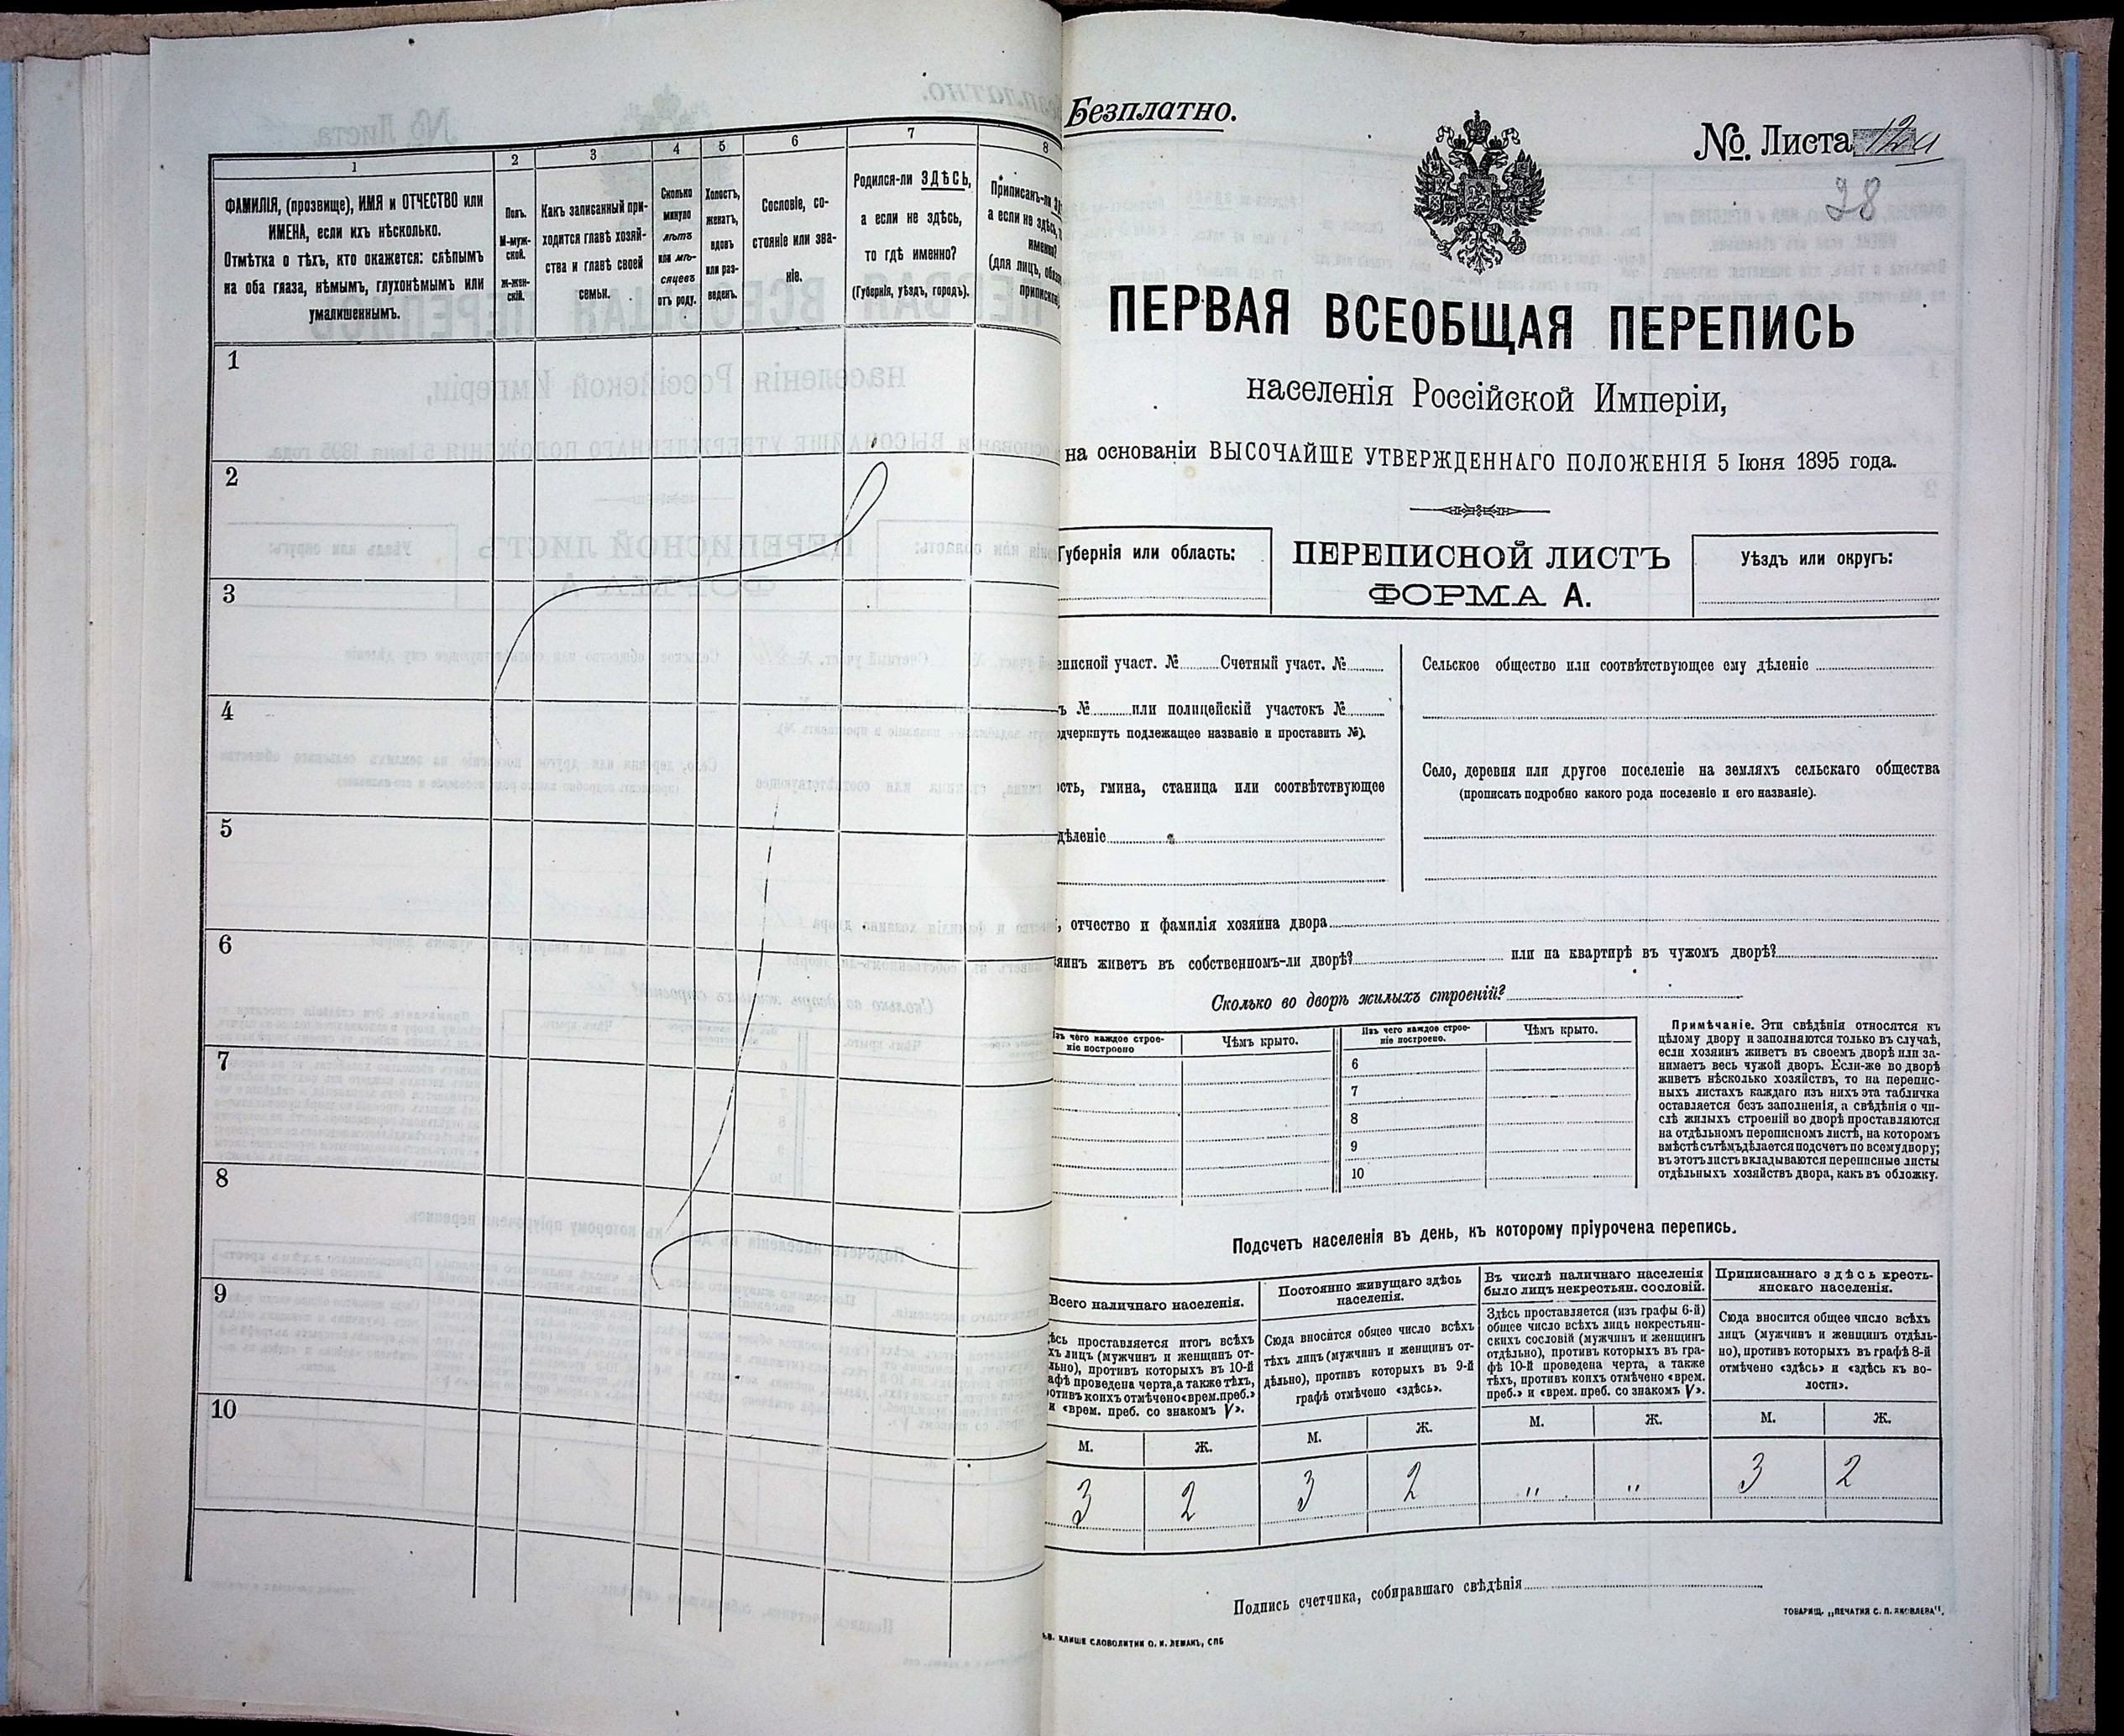 1
2
3
4
5
6
7
8
ФАМИЛІЯ, (прозвище), ИМЯ и ОТЧЕСТВО или
ИМЕНА, если ихъ нѣсколько.
Отмѣтка о тѣхъ, кто окажется: слѣпымъ
на оба глаза, нѣмымъ, глухонѣмымъ или
умалишеннымъ.
Полъ.
М-муж-
ской.
Ж-жен-
скій.
Какъ записанный при-
ходится главѣ хозяй-
ства и главѣ своей
семьи.
Сколько
минуло
лѣтъ
или мѣ-
сяцевъ
отъ роду.
Холостъ,
женатъ,
вдовъ
или раз-
веденъ.
Сословіе, со-
стояніе или зва-
ніе.
Родился-ли ЗДѢСЬ,
а если не здѣсь,
то гдѣ именно?
(Губернія, уѣздъ, городъ).
Приписанъ-ли
а если не здѣсь,
именно?
(для лицъ,
1
2
3
4
5
6
7
8
9
10
Безплатно.
№. Листа 12а
38
ПЕРВАЯ ВСЕОБЩАЯ ПЕРЕПИСЬ
населенія Россійской Имперіи,
на основаніи ВЫСОЧАЙШЕ УТВЕРЖДЕННАГО ПОЛОЖЕНІЯ 5 Іюня 1895 года.
Губернія или область:
ПЕРЕПИСНОЙ ЛИСТЪ
ФОРМА А.
Уѣздъ или округъ:
еписной участ. № Счетный участ. №
ъ № или полицейскій участокъ №
дчеркнуть подлежащее названіе и проставить №).
ость, гмина, станица или соотвѣтствующее
дѣленіе
Сельское общество или соотвѣтствующее ему дѣленіе
Село, деревня или другое поселеніе на земляхъ сельскаго общества
(прописать подробно какого рода поселеніе и его названіе).
, отчество и фамилія хозяина двора
яинъ живетъ въ собственномъ-ли дворѣ? или на квартирѣ въ чужомъ дворѣ?
Сколько во дворѣ жилыхъ строеній?
Изъ чего каждое строе-
ніе построено
Чѣмъ крыто.
Изъ чего каждое строе-
ніе построено.
Чѣмъ крыто.
6
7
8
9
10
Примѣчаніе. Эти свѣдѣнія относятся къ
цѣлому двору и заполняются только въ случаѣ,
если хозяинъ живетъ въ своемъ дворѣ или за-
нимаетъ весь чужой дворъ. Если-же во дворѣ
живетъ нѣсколько хозяйствъ, то на перепис-
ныхъ листахъ каждаго изъ нихъ эта табличка
оставляется безъ заполненія, а свѣдѣнія о чи-
слѣ жилыхъ строеній во дворѣ проставляются
на отдѣльномъ переписномъ листѣ, на которомъ
вмѣстѣ съ тѣмъ дѣлается подсчетъ по всему двору;
въ этотъ листъ вкладываются переписные листы
отдѣльныхъ хозяйствъ двора, какъ въ обложку.
Подсчетъ населенія въ день, къ которому пріурочена перепись.
Всего наличнаго населенія.
ѣсь проставляется итогъ всѣхъ
хъ лицъ (мужчинъ и женщинъ от-
льно), противъ которыхъ въ 10-й
афѣ проведена черта, а также тѣхъ,
отивъ коихъ отмѣчено «врем. преб.»
и «врем. преб. со знакомъ V».
Постоянно живущаго здѣсь
населенія.
Сюда вносится общее число всѣхъ
тѣхъ лицъ (мужчинъ и женщинъ от-
дѣльно), противъ которыхъ въ 9-й
графѣ отмѣчено «здѣсь».
Въ числѣ наличнаго населенія
было лицъ некрестьян. сословій.
Здѣсь проставляется (изъ графы 6-й)
общее число всѣхъ лицъ некрестьян-
скихъ сословій (мужчинъ и женщинъ
отдѣльно), противъ которыхъ въ гра-
фѣ 10-й проведена черта, а также
тѣхъ, противъ коихъ отмѣчено «врем.
преб.» и «врем. преб. со знакомъ V».
Приписаннаго здѣсь кресть-
янскаго населенія.
Сюда вносится общее число всѣхъ
лицъ (мужчинъ и женщинъ отдѣль-
но), противъ которыхъ въ графѣ 8-й
отмѣчено «здѣсь» и «здѣсь къ во-
лости».
М. Ж. М. Ж. М. Ж. М. Ж.
3 2 3 2 " " 3 2
Подпись счетчика, собиравшаго свѣдѣнія
ТОВАРИЩ. „ПЕЧАТНЯ С. П. ЯКОВЛЕВА".
КЛИШЕ СЛОВОЛИТНИ О. И. ЛЕМАНЪ, СПБ